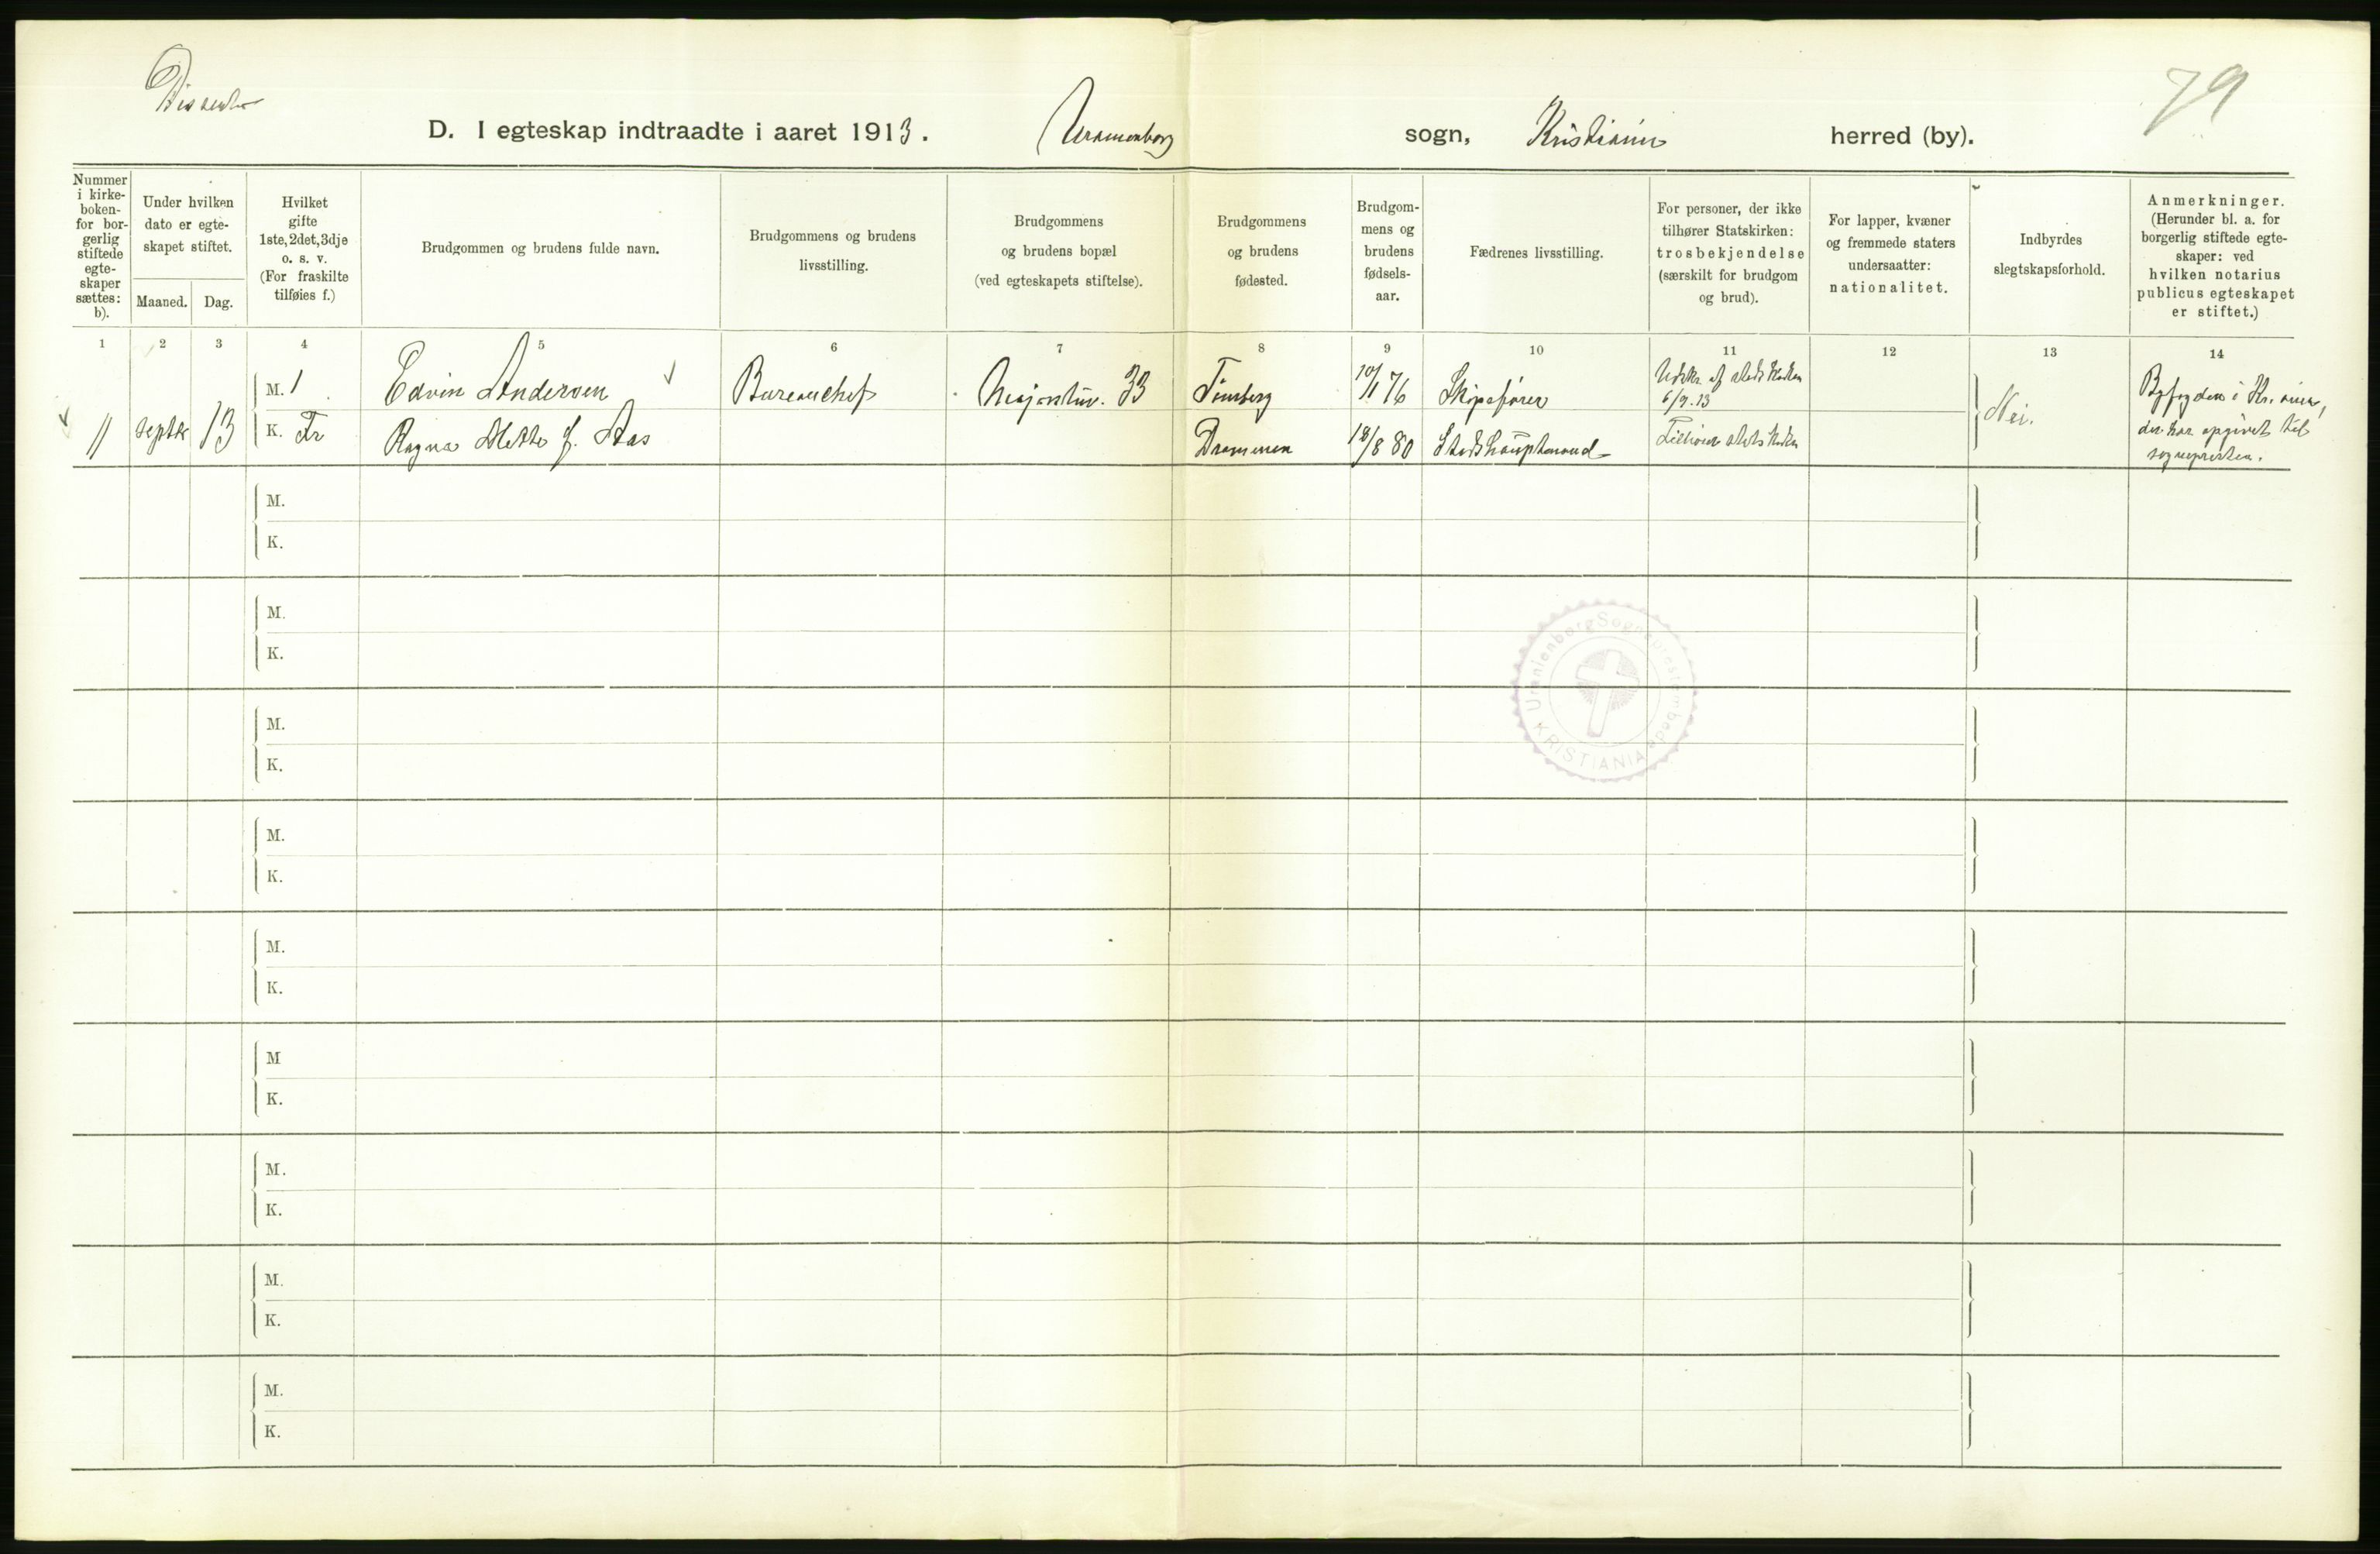 Dissenter
79
D. I egteskap indtraadte i aaret 1913. Uranienborg sogn, Kristiania herred (by).
Nummer i kirke-boken- for bor-gerlig stiftede egte-skaper sættes: b).
Under hvilken dato er egte-skapet stiftet.
Maaned. Dag.
Hvilket gifte 1ste, 2det, 3dje o. s. v. (For fraskilte tilføies f.)
Brudgommen og brudens fulde navn.
Brudgommens og brudens livsstilling.
Brudgommens og brudens bopæl (ved egteskapets stiftelse).
Brudgommens og brudens fødested.
Brudgom-mens og brudens fødsels-aar.
Fædrenes livsstilling.
For personer, der ikke tilhører Statskirken: trosbekjendelse (særskilt for brudgom og brud).
For lapper, kvæner og fremmede staters undersaatter: nationalitet.
Indbyrdes slegtskapsforhold.
Anmerkninger. (Herunder bl. a. for borgerlig stiftede egte-skaper: ved hvilken notarius publicus egteskapet er stiftet.)
1 2 3 4 5 6 7 8 9 10 11 12 13 14
M. 1 Edvin Andersen Bureauchef Majorstuv. 33 Tønsberg 10/1 76 Skipsfører Udskr. af statskirken 6/9.13
11 Septbr 13 K. Fr Ragna Mette f. Aas Drammen 18/8 80 Stadshauptmand Tilhører statskirken
Nei.
Byfogden i Kr.ania,
der har opgivet til
sognepresten.
M.
K.
M.
K.
M.
K.
M.
K.
M.
K.
M
K.
M.
K.
M.
K.
M.
K.
Uranienborg Sogneprestembede
KRISTIANIA